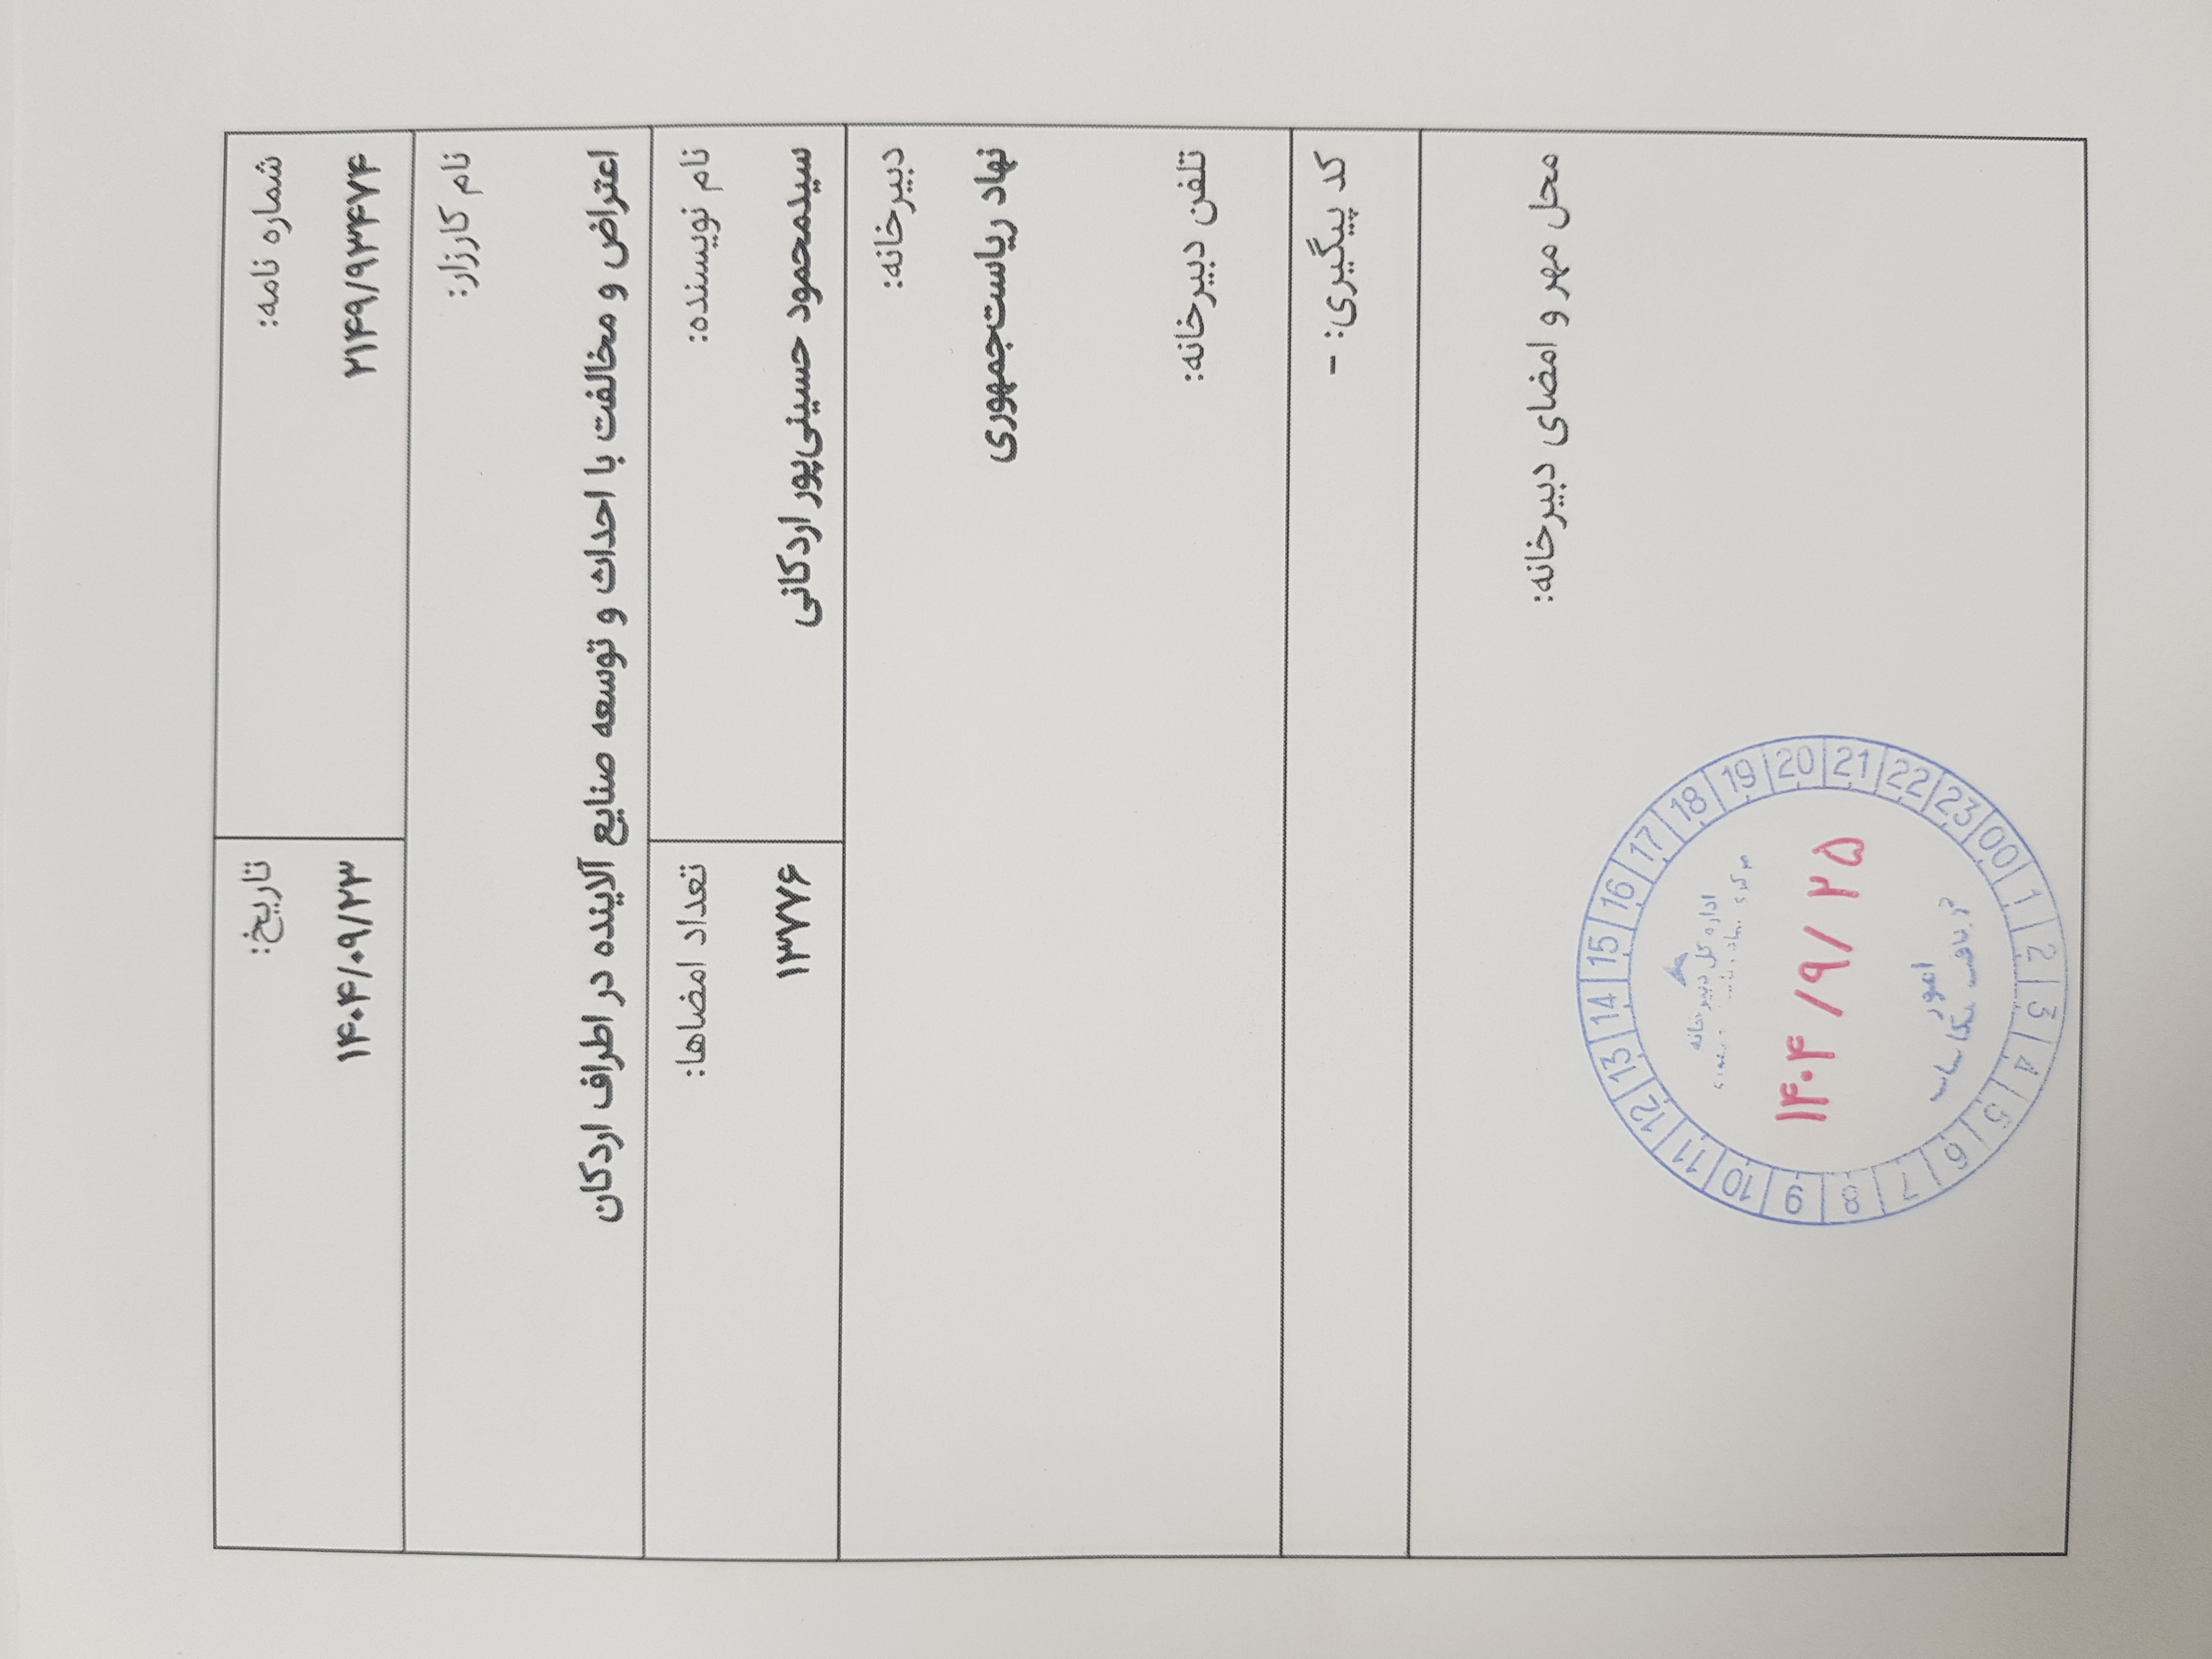 شماره نامه:
۲۱۴۹/۹۳۴۷۴
تاریخ:
۱۴۰۴/۰۹/۲۳
نام کارزار:
اعتراض و مخالفت با احداث و توسعه صنایع آلاینده در اطراف اردکان
نام نویسنده:
سیدمحمود حسینی‌پور اردکانی
تعداد امضاها:
۱۳۷۷۶
دبیرخانه:
نهاد ریاست‌جمهوری
تلفن دبیرخانه:
کد پیگیری: -
محل مهر و امضای دبیرخانه:
اداره کل دبیرخانه
۱۴۰۴/۹/۲۵
امور
00 1 2 3 4 5 6 7 8 9 10 11 12 13 14 15 16 17 18 19 20 21 22 23